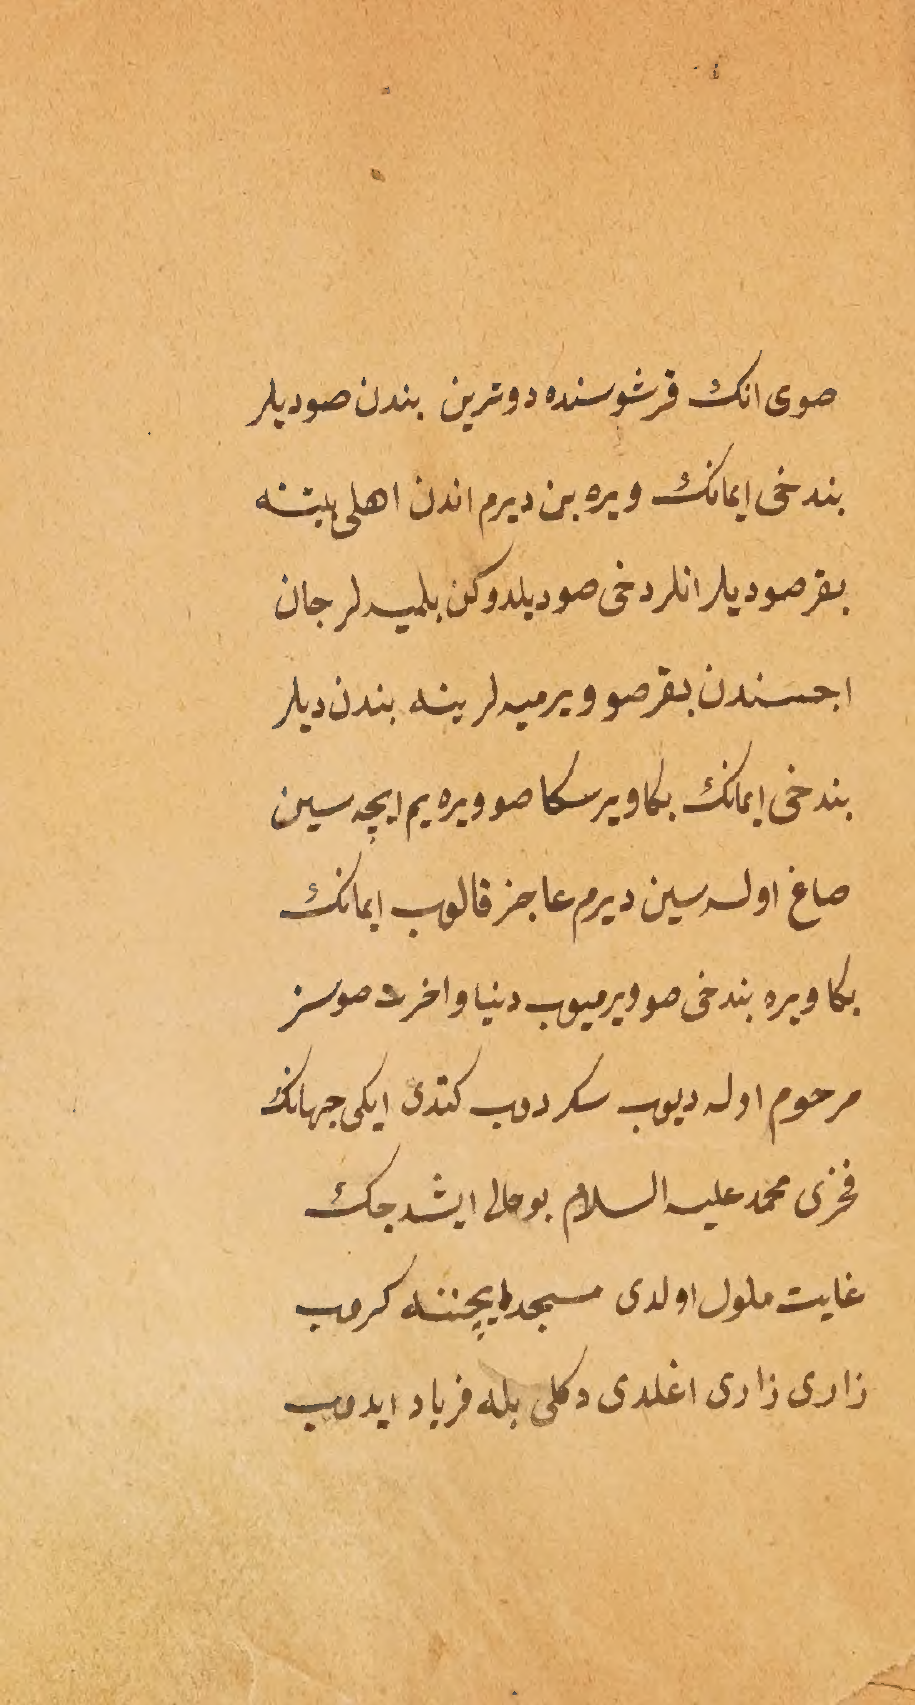 صوی انك قرشوسنده دوترین بندن صودیلر
بندخی ایمانك ویره بن دیرم اندن اهلی بیتنه
بقر صودیلر انلردخی صودیلدوكن بلمیه لر جان
اجسندن بقر صو ویرمیه لر ینه بندن دیلر
بندخی ایمانك بكا ویر سكا صو ویره یم ایچه سین
صاغ اوله سین دیرم عاجز قالوب ایمانك
بكا ویره بندخی صو ویرمیوب دنیا و اخرت صوسز
مرحوم اوله دیوب سكردوب كتدی ایكی جهانك
فخزی محمد علیه السلام بو حالی ایشدجك
غایت ملول اولدی مسجده ایچننه كروب
زاری زاری اغلدی دكلی بله فریاد ایدوب